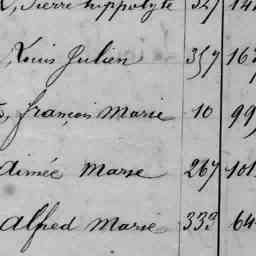 Pierre hippolyte 327 14
Louis Julien 357 16
françois Marie 10 99
Aimée Marie 267 101
Alfred Marie 333 64